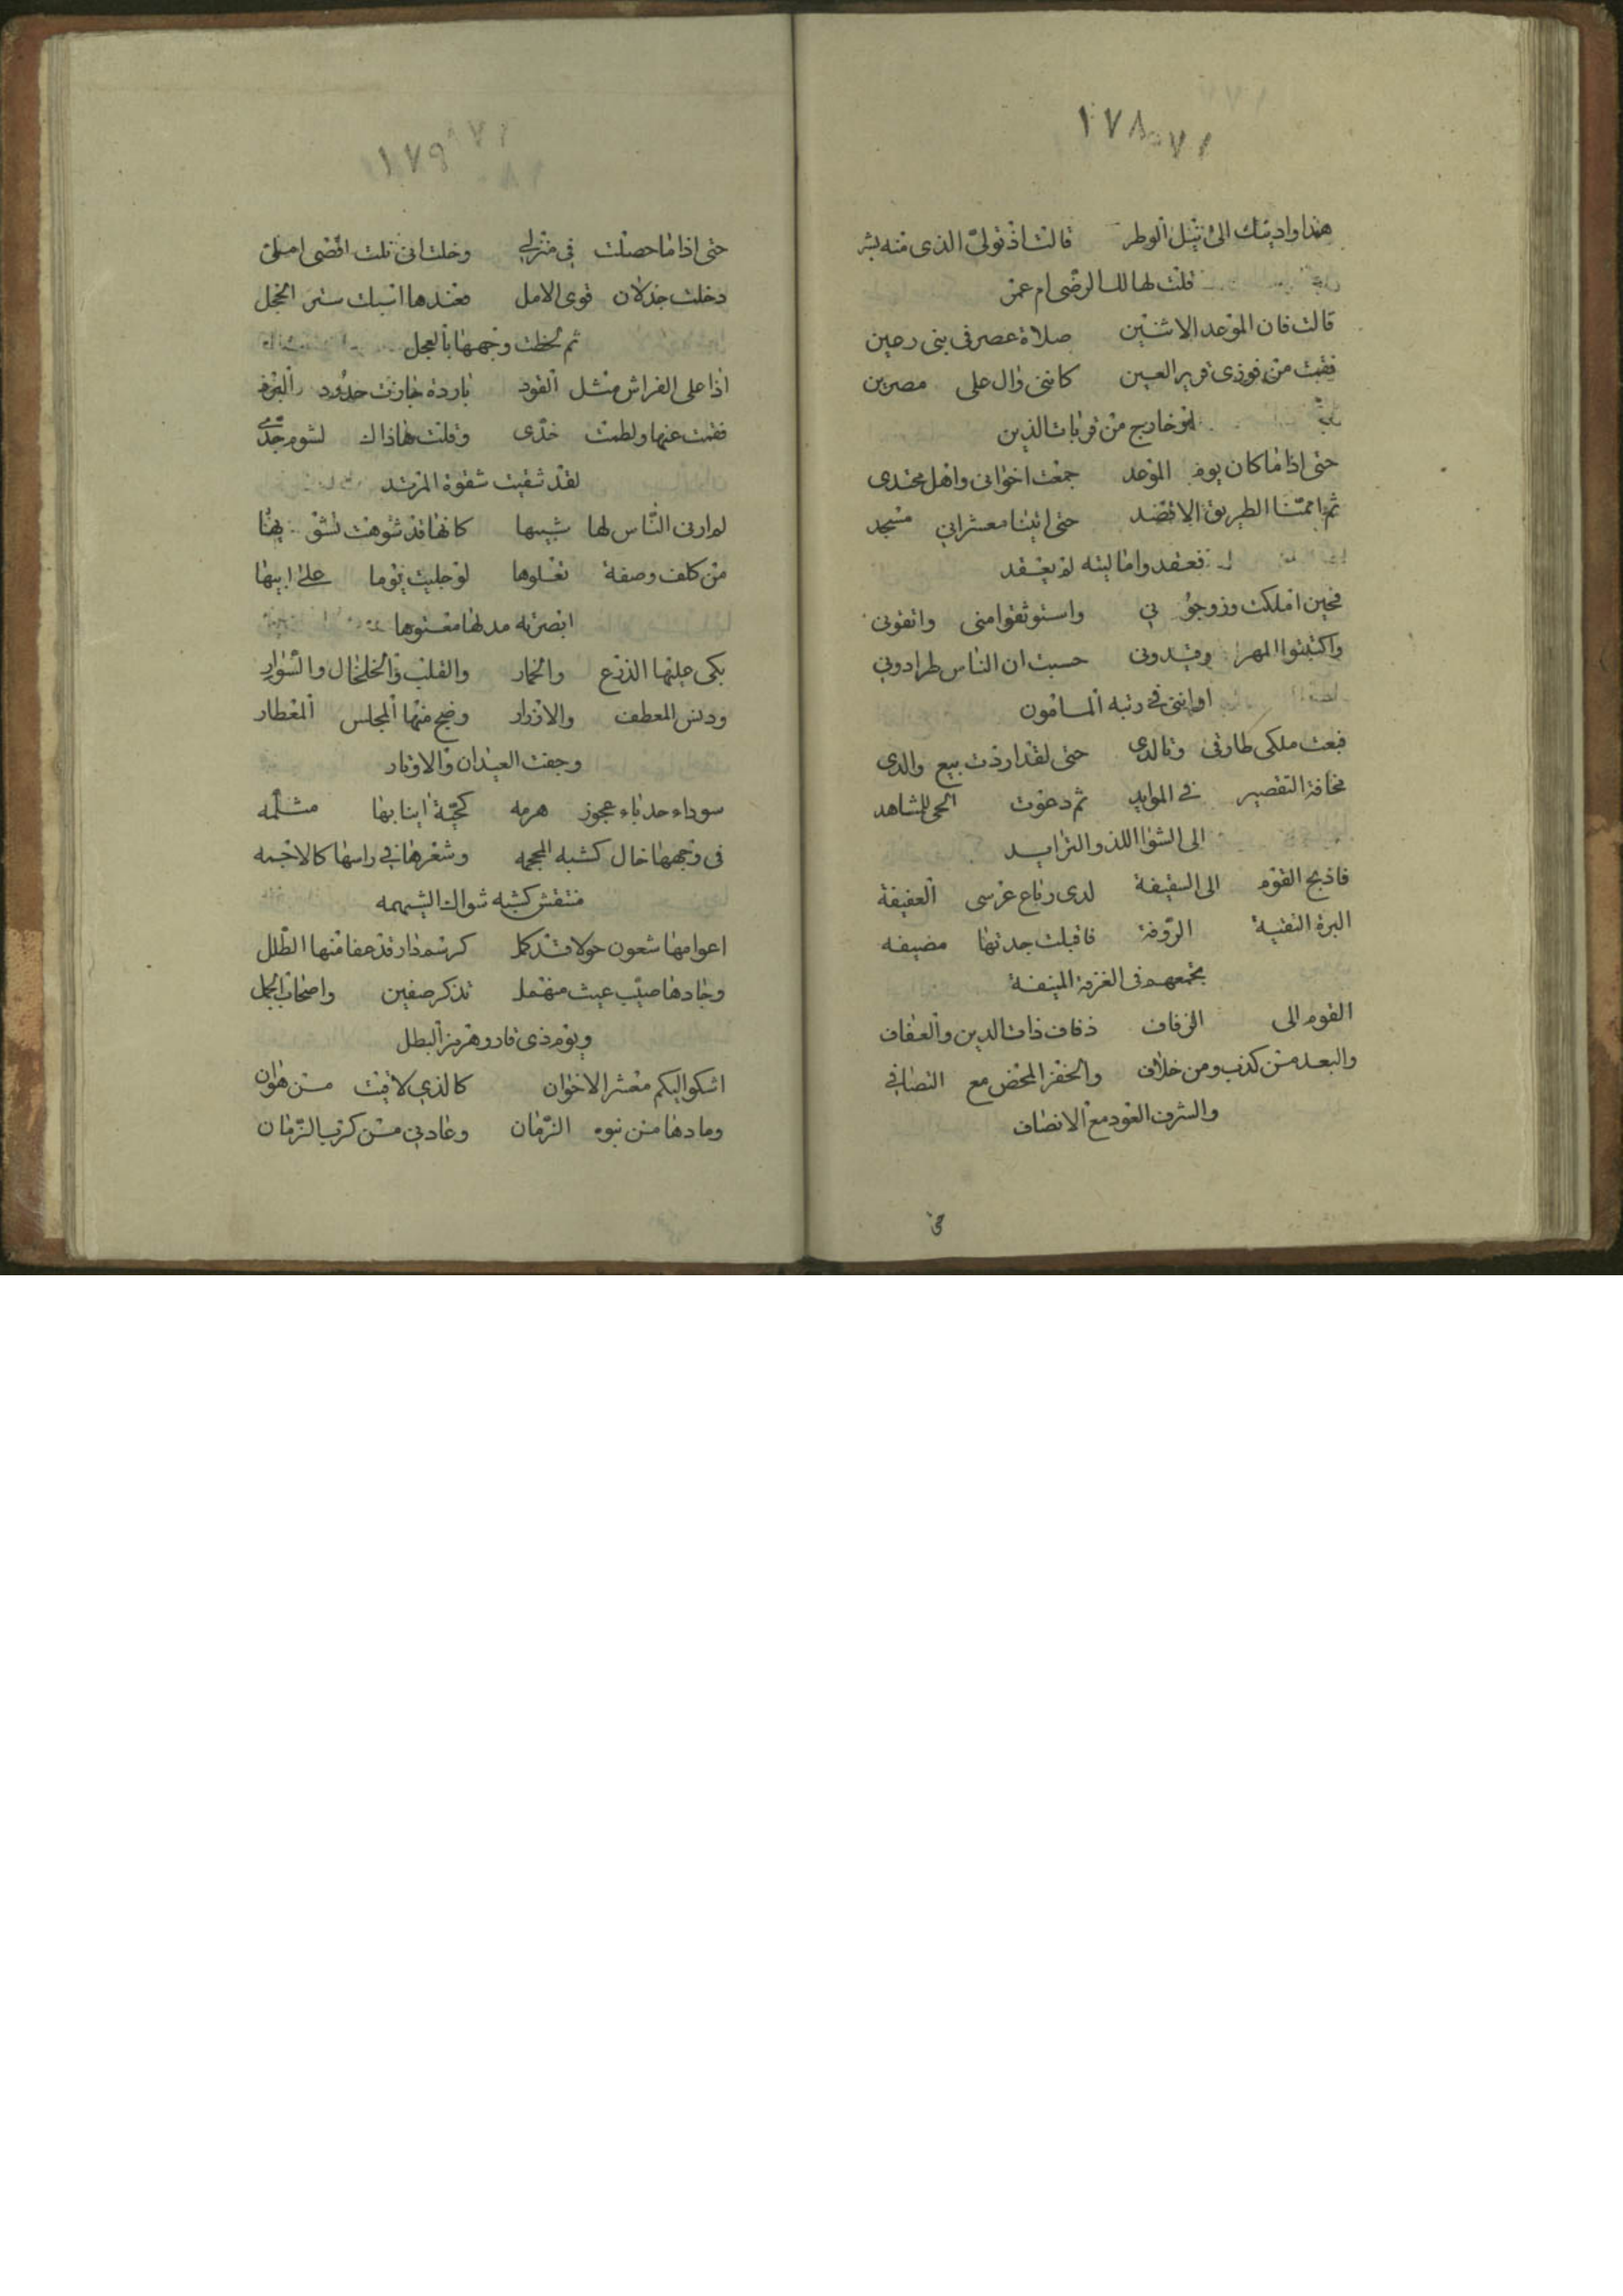 ١٧٨
هذا واديتك الى نيل الوطر قالت اذ تولى الذى منه بشر
قلت لها لك الرضى ام عمر
قالت فان الموعد الاثنين صلاة عصر فى بنى رعين
فقمت من فوزى قرير العين كاننى وال على مصرين
او خارج من قربات الدين
حتى اذا ما كان يوم الموعد جمعت اخوانى واهل محتدى
ثم اممنا الطريق الاقصد حتى اتينا معشرا فى مسجد
فعقدوا ما ليته لم يعقد
فحين املكت وزوجو نى واستوثقوا منى واتقونى
واكتبتوا المهر وقيدونى حسبت ان الناس طرا دونى
او اننى فى رتبه المامون
فبعت ملكى طارفى وتالدى حتى لقد اردت بيع والدى
مخافة التقصير فى الموايد ثم دعوت الحى للمشاهد
الى الشوا اللذ والثرايد
فاذبح القوم الى السقيفة لدى رباع عرسى العفيفة
البرة النقية الروفة فاقبلت جدتها مضيفه
بجمعهم فى الغرفة المنيفة
القوم الى الزفاف زفاف ذات الدين والعفاف
والبعد من كذب ومن خلاف والخفر المحض مع التصافى
والشرف العود مع الانصاف
حتى
١٧٩
حتى اذا ما حصلت فى منزلى وخلت انى نلت اقصى املى
دخلت جذلان قوى الامل فعندها اسبك ستر الخجل
ثم لحظت وجهها بالعجل
اذا على الفراش مثل القرد باردة جازت حدود البرد
فقمت عنها ولطمت خدى وقلت هذاك لشوم جدى
لقد شقيت شقوة المرتد
لم ار فى الناس لها شبيها كانها قد شوهت تشويها
من كلف وصفة تعلوها لو جليت يوما على ابيها
ابصرته مدلها معتوها
بكى عليها الدرع والخمار والقلب والخلخال والسوار
ودنس المعطف والازرار وضج منها المجلس المعطار
وجفت العيدان والاوتار
سوداء حدباء عجوز هرمه كحية انيابها مثلمه
فى وجهها خال كشبه المحجمه وشعرها فى راسها كالاجمه
منتفش كشبه شواك الشيهمه
اعوامها تسعون حولا قد كمل كرسم دار قد عفا منها الطلل
وجادها صيب غيث منهمل تذكر صفين واصحاب الجمل
ويوم ذى قار وهرمز البطل
اشكو اليكم معشر الاخوان كالذي لاقيت من هوان
وما دها من نبوه الزمان وعادنى من كرب الزمان